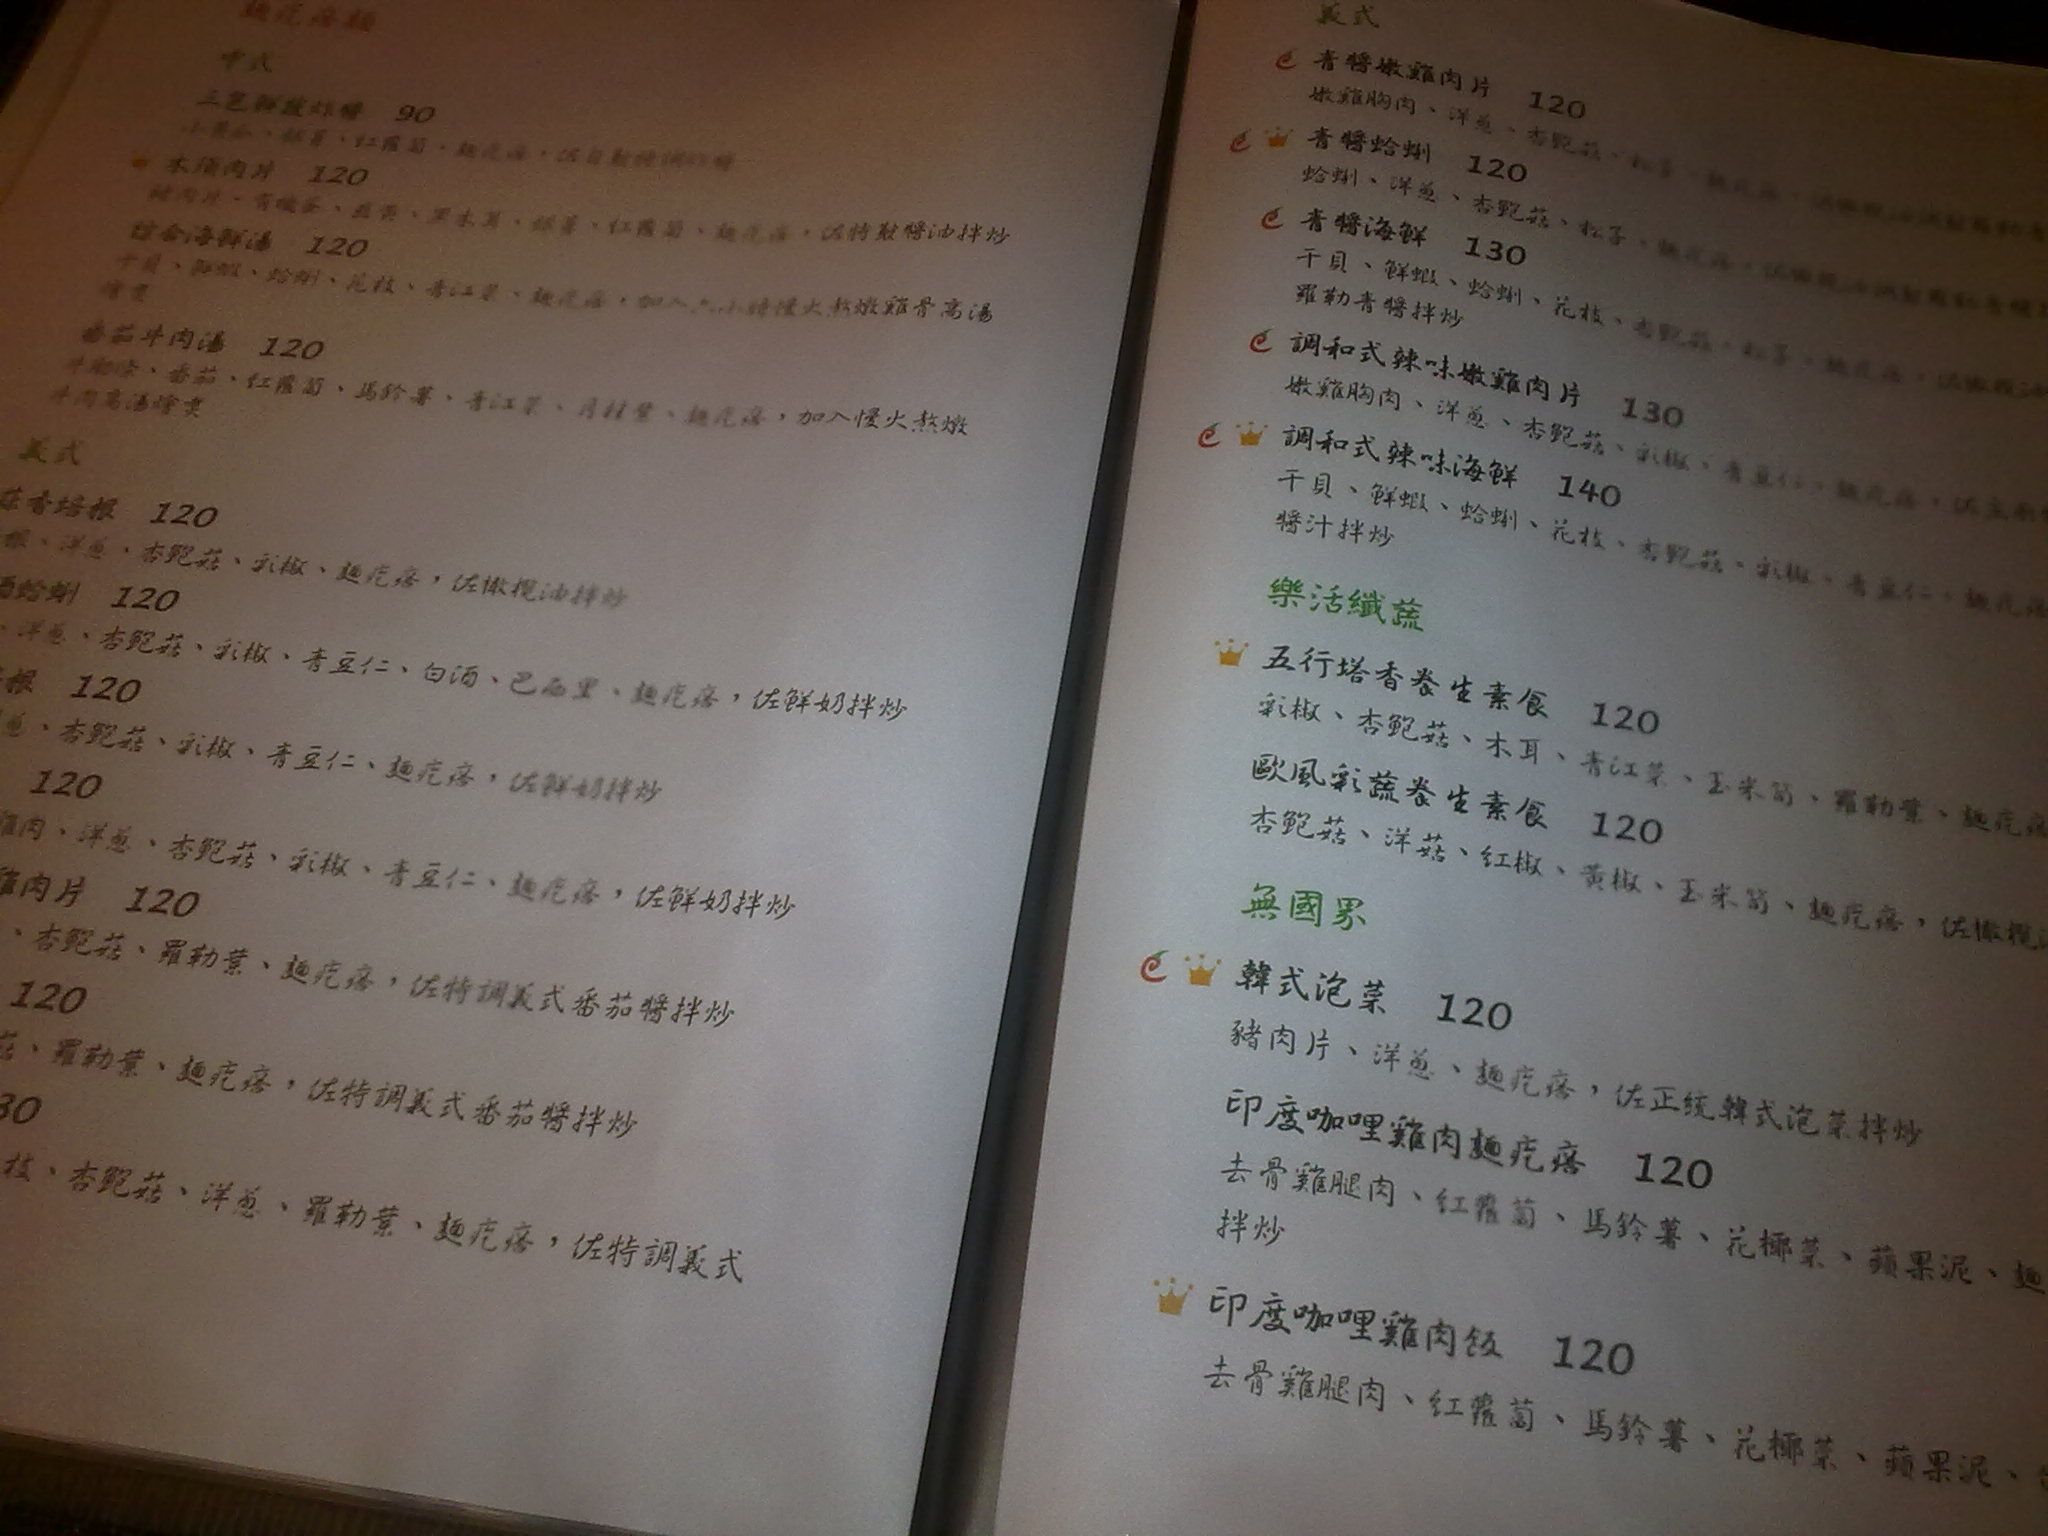 麵疙瘩類
中式
三色鮮蔬炸醬 90
紅蘿蔔、麵疙瘩,佐自製特調炸醬
木須肉片 120
豬肉片、黑木耳、銀芽、紅蘿蔔、麵疙瘩,佐特製醬油拌炒
綜合海鮮湯 120
干貝、鮮蝦、蛤蜊、花枝、青江菜、麵疙瘩,加入六小時慢火熬燉雞骨高湯
燴煮
番茄牛肉湯 120
牛腩條、番茄、紅蘿蔔、馬鈴薯、青江菜、月桂葉、麵疙瘩,加入慢火熬燉
牛肉高湯燴煮
義式
菇香培根 120
根、洋蔥、杏鮑菇、彩椒、麵疙瘩,佐橄欖油拌炒
酒蛤蜊 120
、洋蔥、杏鮑菇、彩椒、青豆仁、白酒、巴西里、麵疙瘩,佐鮮奶拌炒
根 120
蔥、杏鮑菇、彩椒、青豆仁、麵疙瘩,佐鮮奶拌炒
120
雞肉、洋蔥、杏鮑菇、彩椒、青豆仁、麵疙瘩,佐鮮奶拌炒
雞肉片 120
、杏鮑菇、羅勒葉、麵疙瘩,佐特調義式番茄醬拌炒
120
菇、羅勒葉、麵疙瘩,佐特調義式番茄醬拌炒
30
枝、杏鮑菇、洋蔥、羅勒葉、麵疙瘩,佐特調義式
義式
青醬嫩雞肉片 120
嫩雞胸肉、洋蔥、杏鮑菇、松子、麵疙瘩
青醬蛤蜊 120
蛤蜊、洋蔥、杏鮑菇、松子、麵疙瘩
青醬海鮮 130
干貝、鮮蝦、蛤蜊、花枝、杏鮑菇、松子、麵疙瘩,佐橄欖油
羅勒青醬拌炒
調和式辣味嫩雞肉片 130
嫩雞胸肉、洋蔥、杏鮑菇、彩椒、青豆仁、麵疙瘩
調和式辣味海鮮 140
干貝、鮮蝦、蛤蜊、花枝、杏鮑菇、彩椒、青豆仁、麵疙瘩
醬汁拌炒
樂活纖蔬
五行塔香養生素食 120
彩椒、杏鮑菇、木耳、青江菜、玉米筍、羅勒葉、麵疙瘩
歐風彩蔬養生素食 120
杏鮑菇、洋菇、紅椒、黃椒、玉米筍、麵疙瘩,佐橄欖油
無國界
韓式泡菜 120
豬肉片、洋蔥、麵疙瘩,佐正統韓式泡菜拌炒
印度咖哩雞肉麵疙瘩 120
去骨雞腿肉、紅蘿蔔、馬鈴薯、花椰菜、蘋果泥、麵
拌炒
印度咖哩雞肉飯 120
去骨雞腿肉、紅蘿蔔、馬鈴薯、花椰菜、蘋果泥、